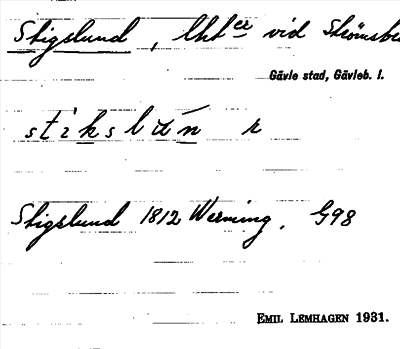 Stigslund, lht er vid Strömsbr
Gävle stad, Gävleb. l.
stiksluń r
Stigslund 1812 Werming. G98
EMIL LEMHAGEN 1931.